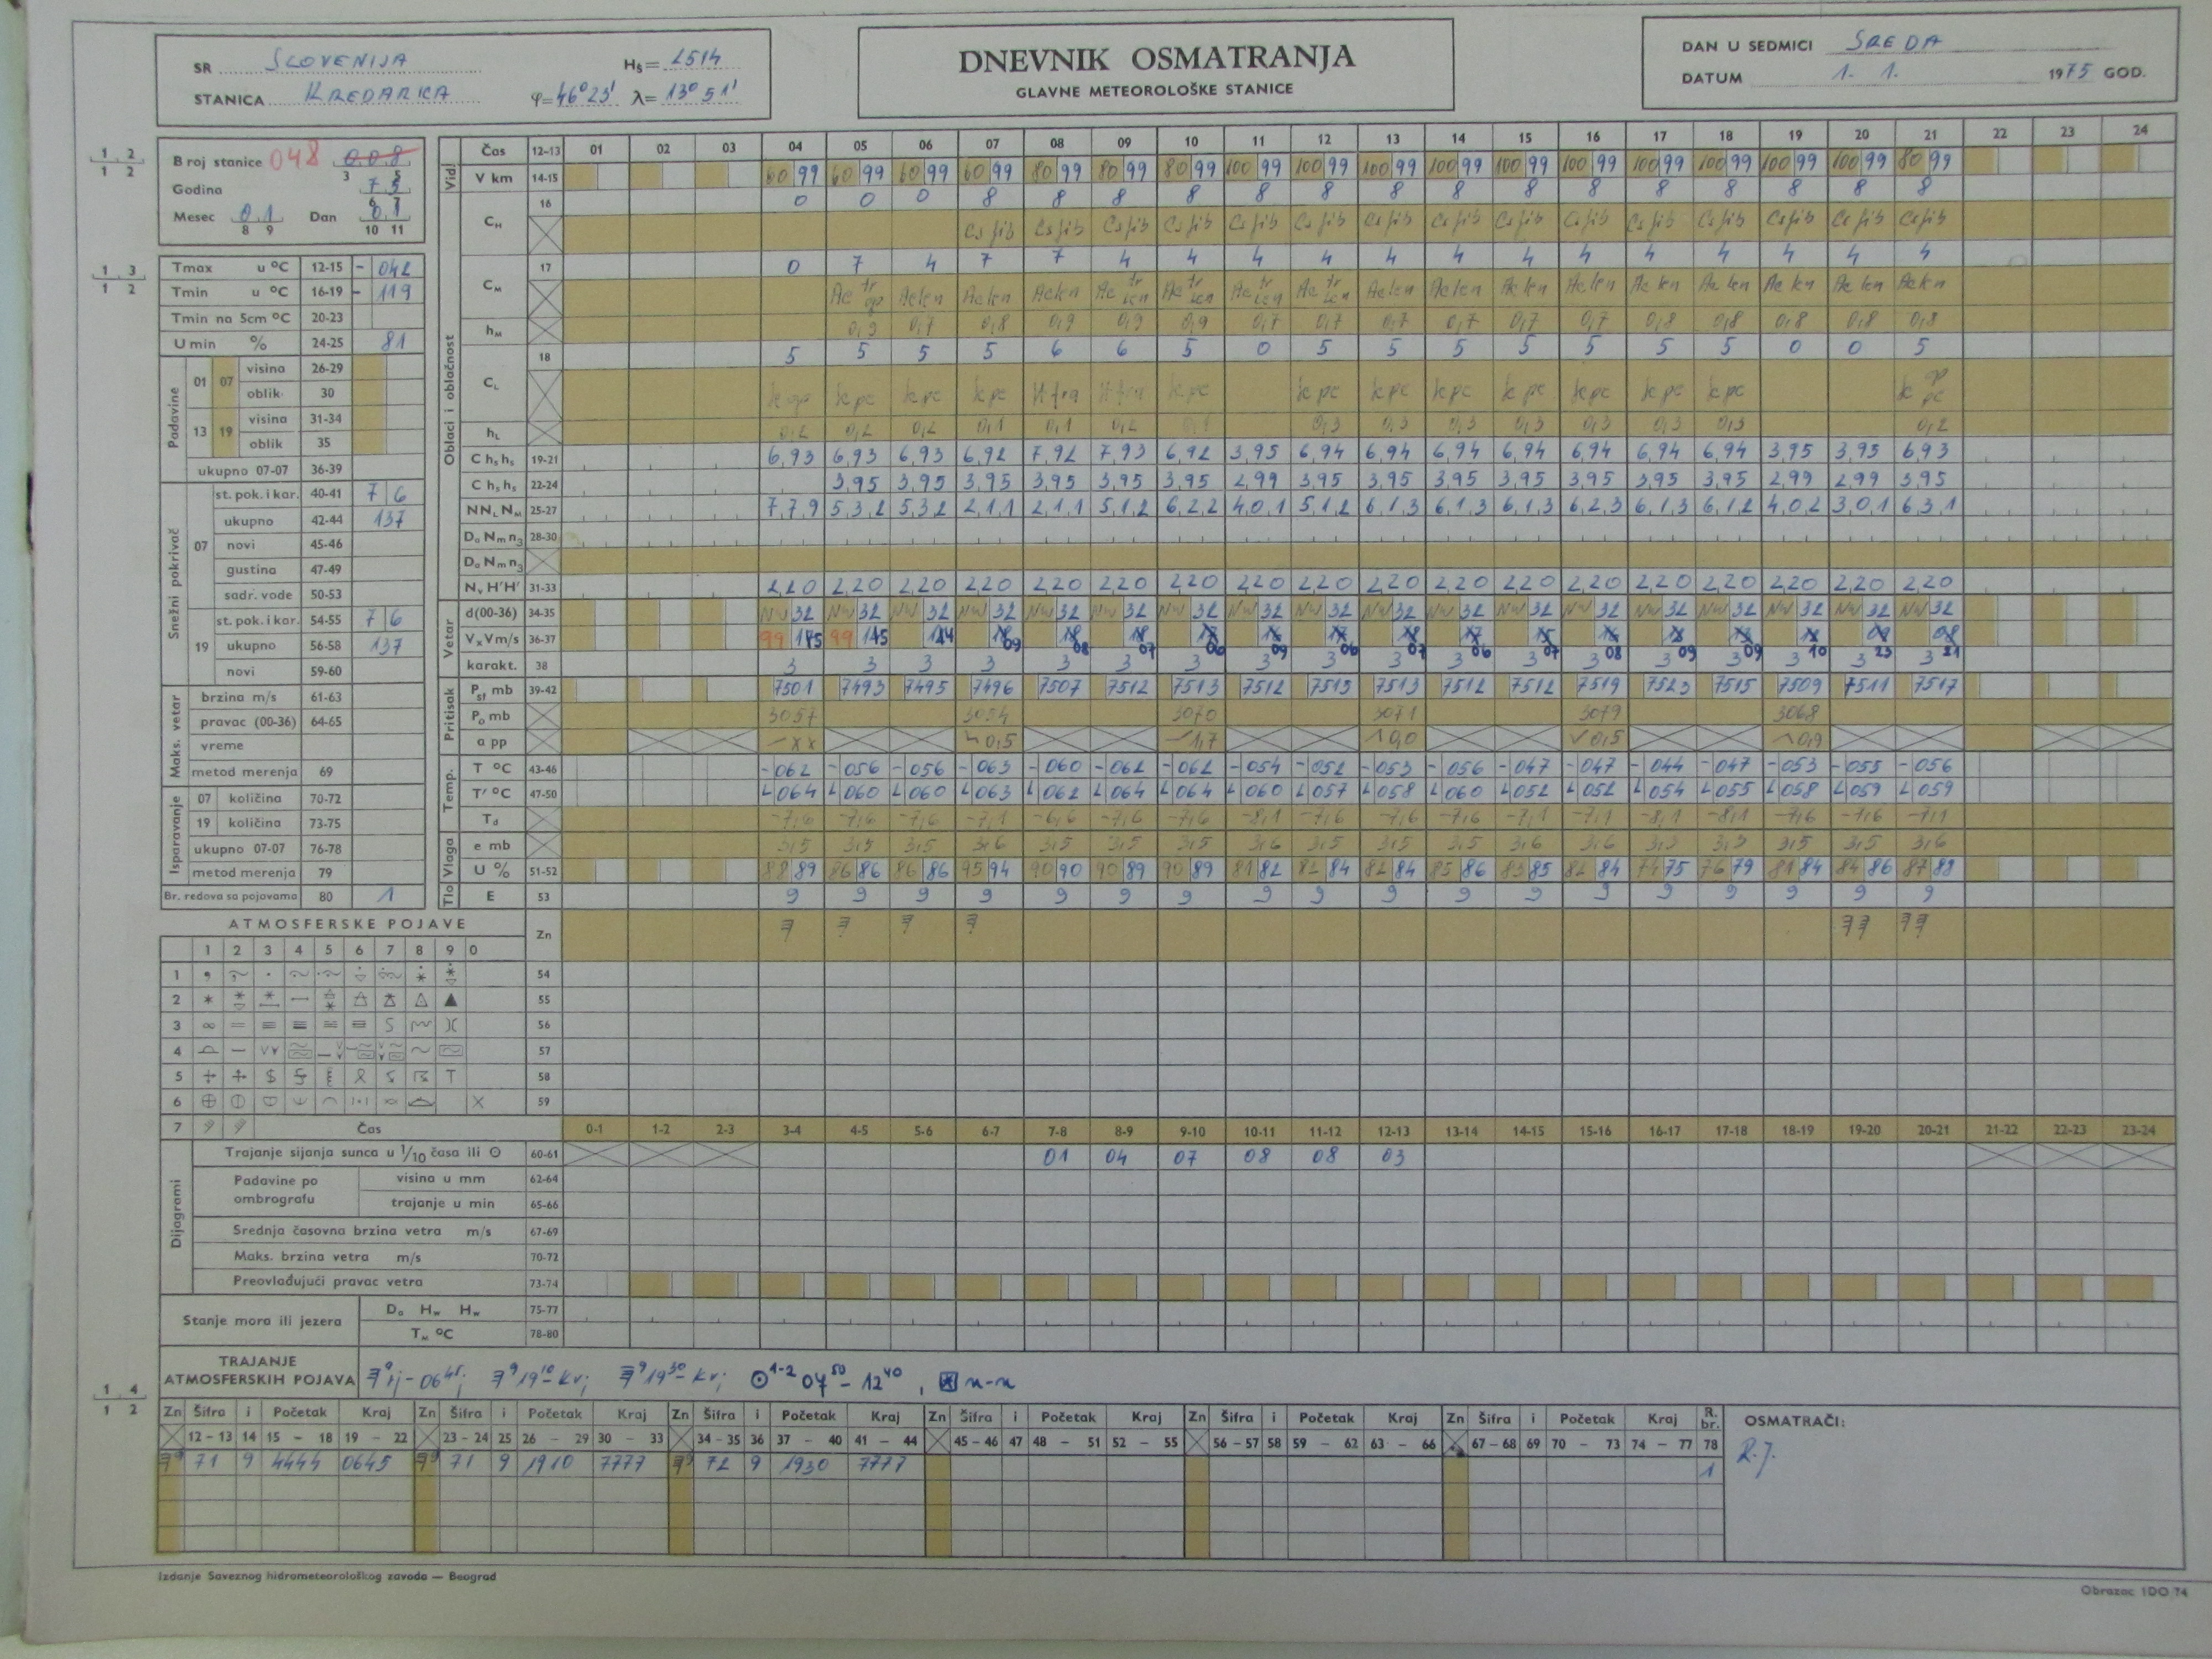 SR SLOVENIJA Hs= 2514
STANICA KREDARICA φ=46°23' λ= 13°51'
DNEVNIK OSMATRANJA
GLAVNE METEOROLOŠKE STANICE
DAN U SEDMICI SREDA
DATUM 1. 1. 1975 GOD.
Broj stanice 048 008
3 5
Godina 75
6 7
Mesec 01 Dan 01
8 9 10 11
Tmax u °C 12-15 - 042
Tmin u °C 16-19 - 119
Tmin na 5cm °C 20-23
U min % 24-25 81
Padavine
01 07 visina 26-29
oblik 30
13 19 visina 31-34
oblik 35
ukupno 07-07 36-39
Snežni pokrivač
07 st. pok. i kar. 40-41 7 6
ukupno 42-44 137
novi 45-46
gustina 47-49
sadr. vode 50-53
19 st. pok. i kar. 54-55 7 6
ukupno 56-58 137
novi 59-60
Maks. vetar
brzina m/s 61-63
pravac (00-36) 64-65
vreme
metod merenja 69
Isparavanje
07 količina 70-72
19 količina 73-75
ukupno 07-07 76-78
metod merenja 79
Br. redova sa pojavama 80 1
Čas 12-13 01 02 03 04 05 06 07 08 09 10 11 12 13 14 15 16 17 18 19 20 21 22 23 24
Vid. V km 14-15 60 99 60 99 60 99 60 99 80 99 80 99 80 99 100 99 100 99 100 99 100 99 100 99 100 99 100 99 100 99 100 99 100 99 80 99
Oblaci i oblačnost
CH 16 0 0 0 8 8 8 8 8 8 8 8 8 8 8 8 8 8 8
Cs fib Cs fib Cs fib Cs fib Cs fib Cs fib Cs fib Cs fib Cs fib Cs fib Cs fib Cs fib Cs fib Cs fib Cs fib
CM 17 0 7 4 7 7 4 4 4 4 4 4 4 4 4 4 4 4 4
Ac tr op Ac len Ac len Ac len Ac tr len Ac tr len Ac tr len Ac tr len Ac len Ac len Ac len Ac len Ac len Ac len Ac len Ac len Ac len
hM 0,9 0,7 0,8 0,9 0,9 0,9 0,7 0,7 0,7 0,7 0,7 0,7 0,8 0,8 0,8 0,8 0,8
CL 18 5 5 5 5 6 6 5 0 5 5 5 5 5 5 5 0 0 5
hL 0,2 0,2 0,2 0,1 0,1 0,2 0,3 0,3 0,3 0,3 0,3 0,3 0,3 0,2
C hs hs 19-21 6,93 6,93 6,93 6,92 7,92 7,93 6,92 3,95 6,94 6,94 6,94 6,94 6,94 6,94 6,94 3,95 3,95 6,93
C hs hs 22-24 3,95 3,95 3,95 3,95 3,95 3,95 2,99 3,95 3,95 3,95 3,95 3,95 3,95 3,95 2,99 2,99 3,95
NNL NM 25-27 7,7,9 5,3,2 5,3,2 2,1,1 2,1,1 5,1,2 6,2,2 4,0,1 5,1,2 6,1,3 6,1,3 6,1,3 6,2,3 6,1,3 6,1,2 4,0,2 3,0,1 6,3,1
Da Nm n3 28-30
Da Nm n3
Nv H'H' 31-33 2,20 2,20 2,20 2,20 2,20 2,20 2,20 2,20 2,20 2,20 2,20 2,20 2,20 2,20 2,20 2,20 2,20 2,20
Vetar
d(00-36) 34-35 NW 32 NW 32 NW 32 NW 32 NW 32 NW 32 NW 32 NW 32 NW 32 NW 32 NW 32 NW 32 NW 32 NW 32 NW 32 NW 32 NW 32 NW 32
Vx Vm/s 36-37 99 99 09 08 07 06 09 06 07 06 07 08 09 09 10
karakt. 38 3 3 3 3 3 3 3 3 3 3 3 3 3 3 3 3 3 3
Pritisak
Pst mb 39-42 7501 7493 7495 7496 7507 7512 7513 7512 7513 7513 7512 7512 7519 7523 7515 7509 7511 7517
Po mb 3057 3054 3070 3071 3079 3068
a pp xx 0,5 1,7 0,0 0,5 0,9
Temp.
T °C 43-46 -062 -056 -056 -063 -060 -062 -062 -054 -052 -053 -056 -047 -047 -044 -047 -053 -055 -056
T' °C 47-50 L064 L060 L060 L063 L062 L064 L064 L060 L057 L058 L060 L052 L052 L054 L055 L058 L059 L059
Td -7,6 -7,6 -7,6 -7,1 -6,6 -7,6 -7,6 -8,1 -7,6 -7,6 -7,6 -7,1 -7,1 -8,1 -8,1 -7,6 -7,6 -7,1
Vlaga
e mb 3,5 3,5 3,5 3,6 3,5 3,5 3,5 3,6 3,5 3,5 3,5 3,6 3,6 3,3 3,3 3,5 3,5 3,6
U % 51-52 88 89 86 86 86 86 95 94 90 90 90 89 90 89 81 82 82 84 82 84 85 86 83 85 82 84 74 75 76 79 81 84 84 86 87 88
Tlo E 53 9 9 9 9 9 9 9 9 9 9 9 9 9 9 9 9 9 9
ATMOSFERSKE POJAVE Zn
1 2 3 4 5 6 7 8 9 0
1 54
2 55
3 56
4 57
5 58
6 59
7 Čas 0-1 1-2 2-3 3-4 4-5 5-6 6-7 7-8 8-9 9-10 10-11 11-12 12-13 13-14 14-15 15-16 16-17 17-18 18-19 19-20 20-21 21-22 22-23 23-24
Dijagrami
Trajanje sijanja sunca u 1/10 časa ili ⊙ 60-61 01 04 07 08 08 03
Padavine po ombrografu visina u mm 62-64
trajanje u min 65-66
Srednja časovna brzina vetra m/s 67-69
Maks. brzina vetra m/s 70-72
Preovlađujući pravac vetra 73-74
Stanje mora ili jezera Da Hw Hw 75-77
TM °C 78-80
TRAJANJE ATMOSFERSKIH POJAVA
⊙1-2 07 50 - 12 40, n-n
Zn Šifra i Početak Kraj Zn Šifra i Početak Kraj Zn Šifra i Početak Kraj Zn Šifra i Početak Kraj Zn Šifra i Početak Kraj Zn Šifra i Početak Kraj R. br.
12-13 14 15 - 18 19 - 22 23-24 25 26 - 29 30 - 33 34-35 36 37 - 40 41 - 44 45-46 47 48 - 51 52 - 55 56-57 58 59 - 62 63 - 66 67-68 69 70 - 73 74 - 77 78
71 9 4444 0645 71 9 1910 7777 72 9 1930 7777 1
OSMATRAČI:
R.J.
Izdanje Saveznog hidrometeorološkog zavoda — Beograd
Obrazac 1DO 74